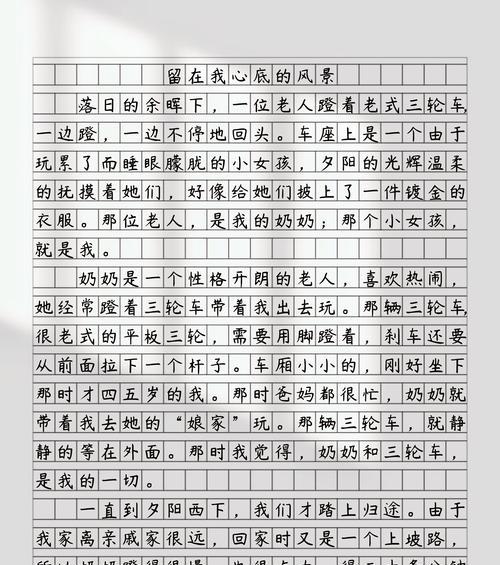 留在我心底的风景
落日的余晖下，一位老人蹬着老式三轮车，
一边蹬，一边不停地回头。车座上是一个由于
玩累了而睡眼朦胧的小女孩，夕阳的光辉温柔
的抚摸着她们，好像给她们披上了一件镀金的
衣服。那位老人，是我的奶奶；那个小女孩，
就是我。
奶奶是一个性格开朗的老人，喜欢热闹，
她经常蹬着三轮车带着我出去玩。那辆三轮车，
很老式的平板三轮，需要用脚蹬着，刹车还要
从前面拉下一个杆子。车厢小小的，刚好坐下
那时才四五岁的我。那时爸妈都很忙，奶奶就
带着我去她的“娘家”玩。那辆三轮车，就静
静的等在外面。那时我觉得，奶奶和三轮车，
是我的一切。
一直到夕阳西下，我们才踏上归途。由于
我家离亲戚家很远，回家时又是一个上坡路，